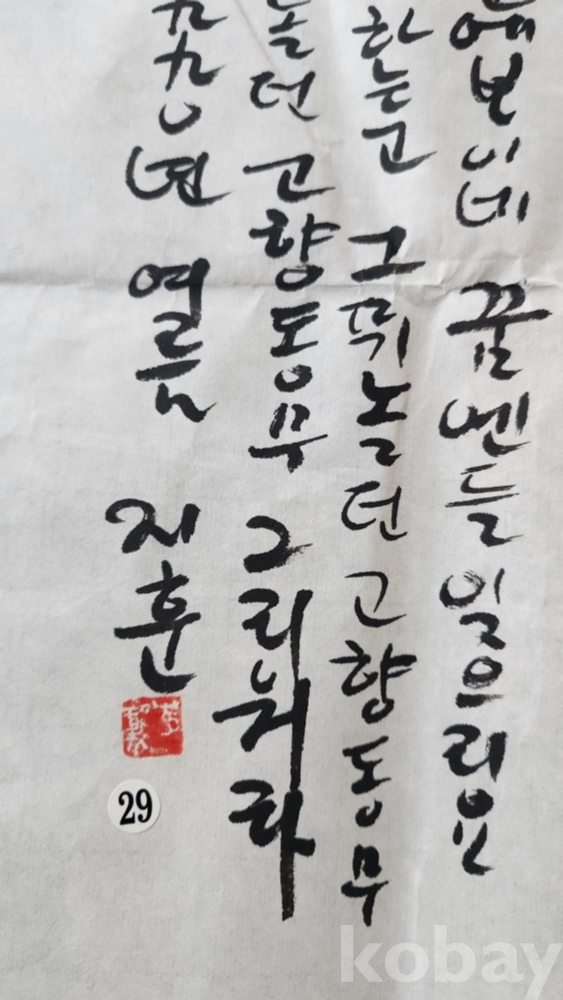 에 보이네 꿈엔들 잊으리요
하는고 그 뛰놀던 고향동무
놀던 고향동무 그리워라
九九〇년 여름 지훈
29
kobay